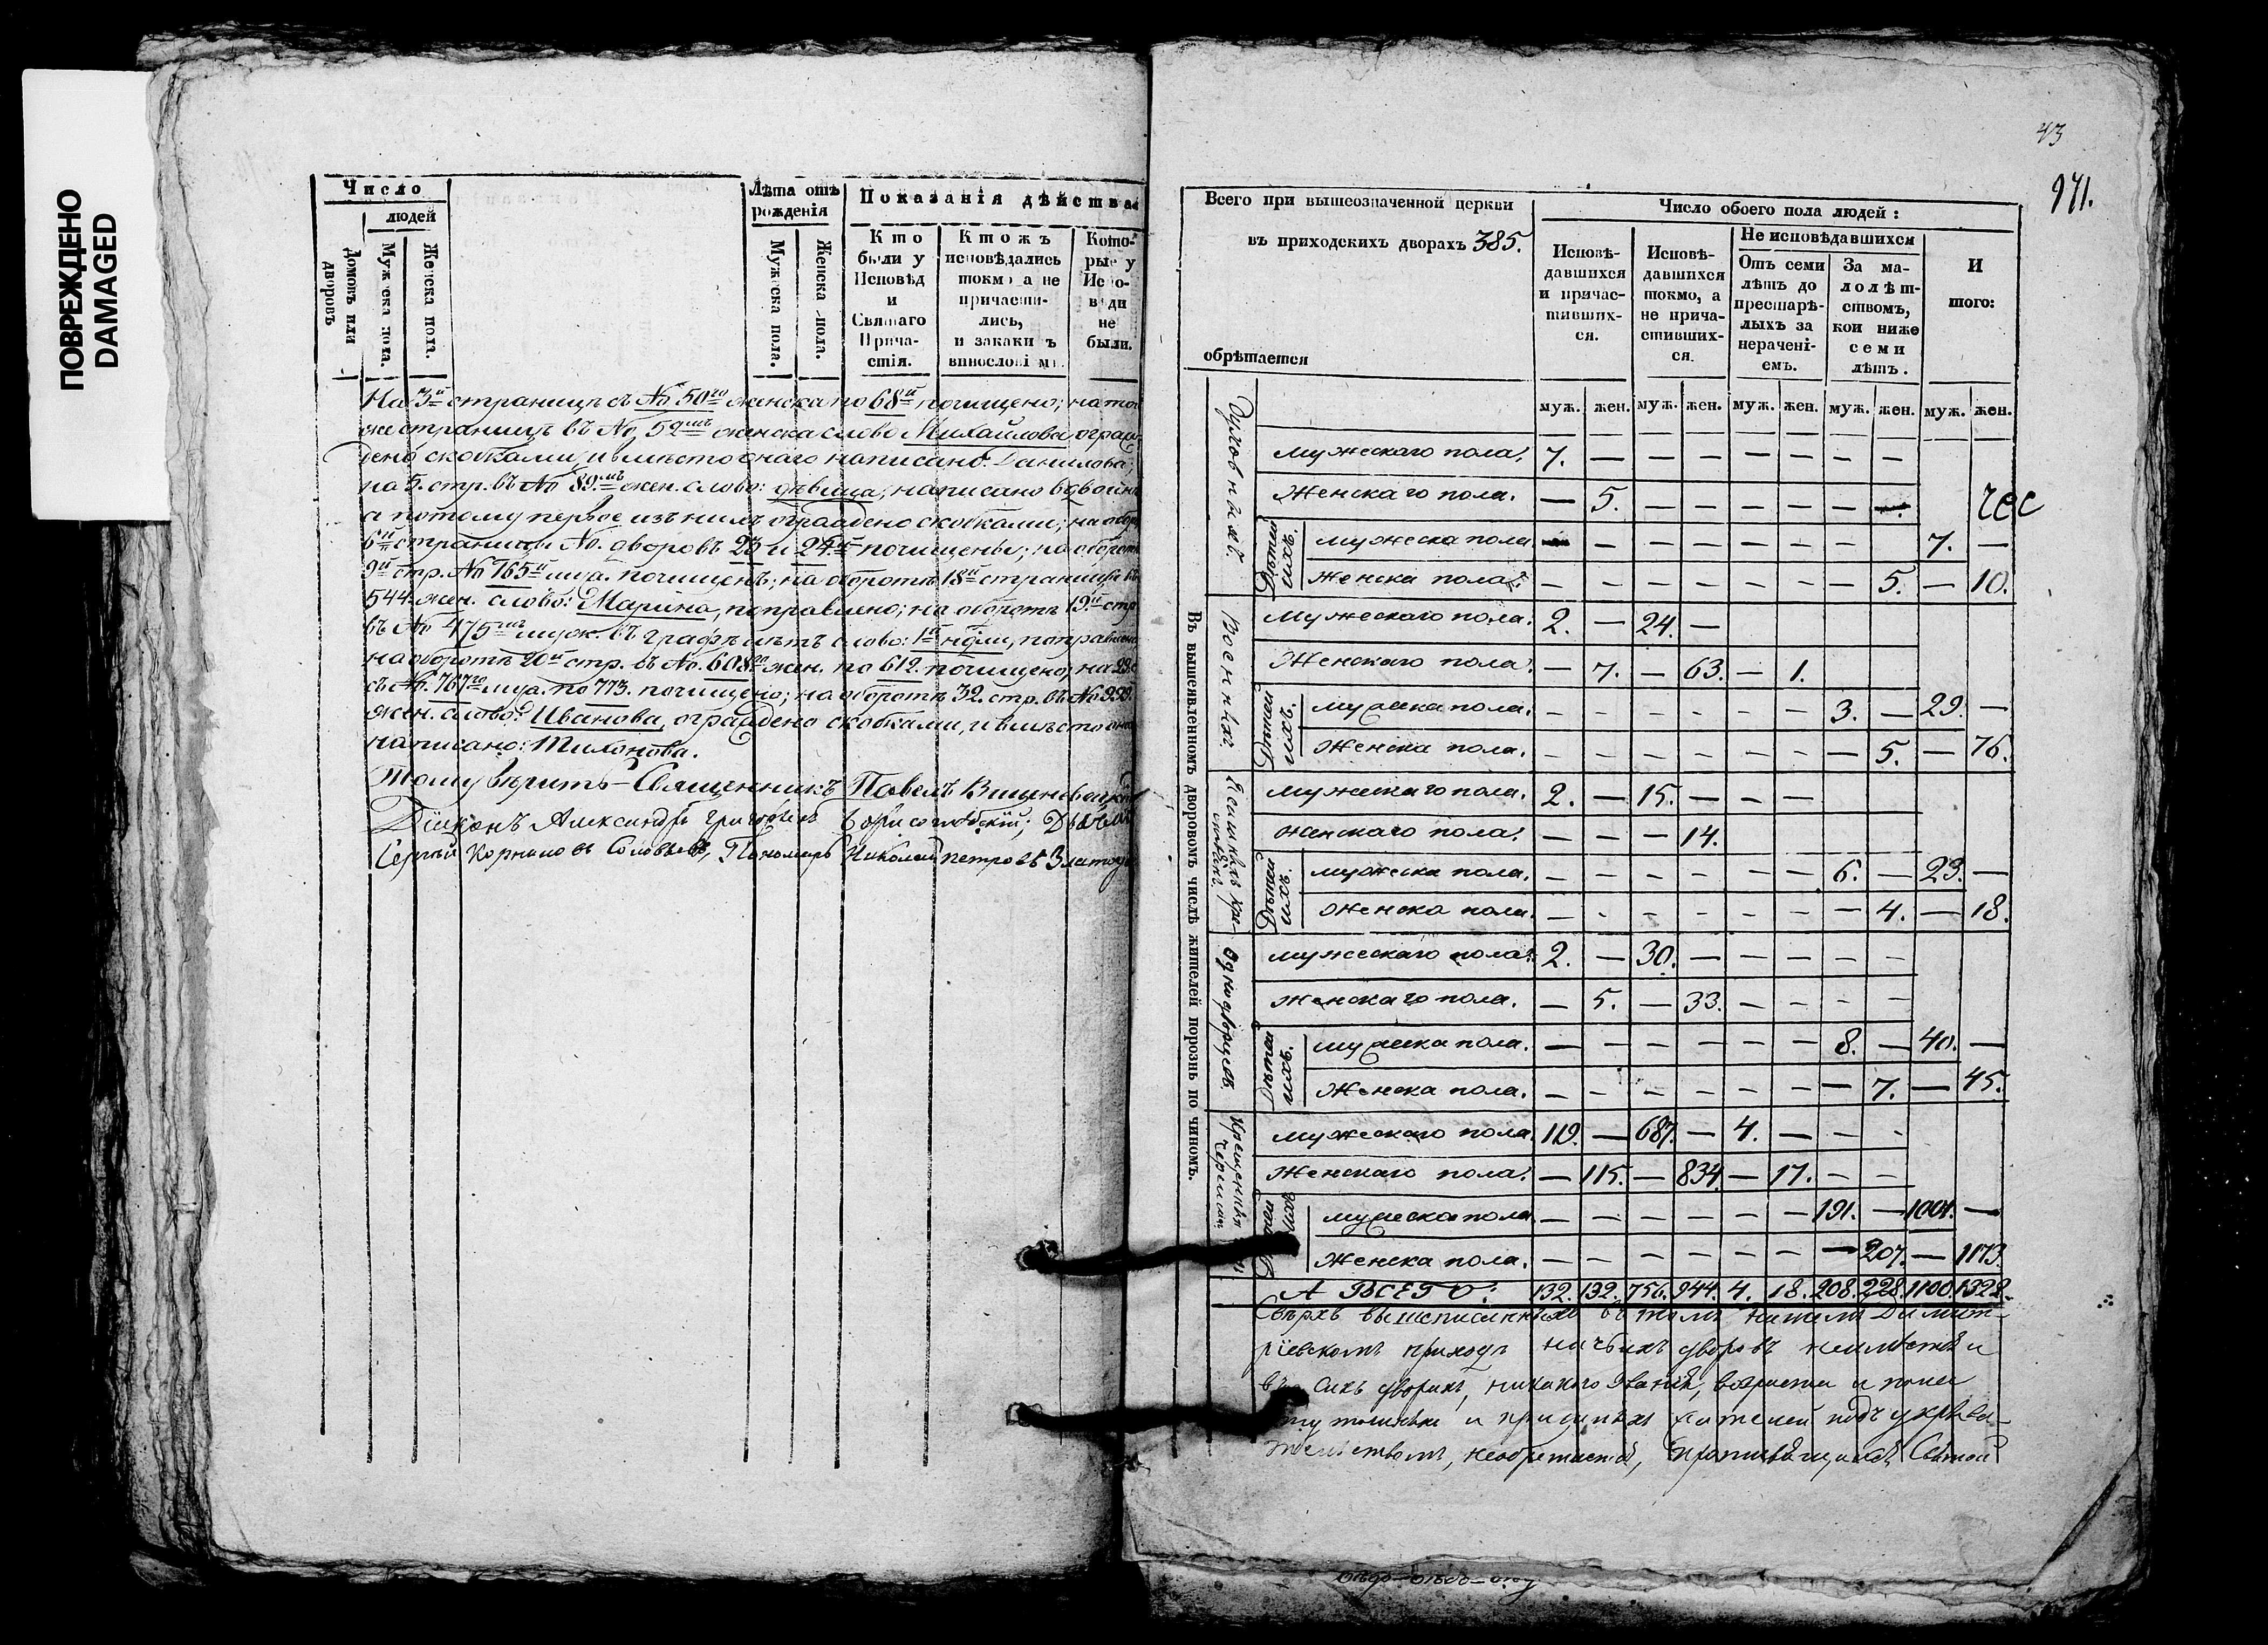 ПОВРЕЖДЕНО
DAMAGED
Число
людей
Домовъ или дворовъ
Мужеска пола.
Женска пола.
Лѣта отъ рожденія
Мужеска пола.
Женска пола.
Показанія дѣйства
Кто были у Исповѣди и Святаго Причастія.
Ктожъ исповѣдались токмо а не причастились, и закакимъ винословіемъ.
Которые у Исповѣди не были.
На 3й страницѣ съ № 50го женска по 68й почищено; на той
же страницѣ въ № 52мъ женска слово Михайлова ограж-
дено скобками, и вмѣсто онаго написано: Данилова;
на 5. стр. въ № 89.мъ жен. слово: дѣвица, написано вдвойнѣ
а потому первое изъ нихъ ограждено скобками; на обор.
6й страницы №. дворовъ 23 и 24й почищены; на оборотѣ
9й стр. № 165й муж. почищенъ; на оборотѣ 18й страницы въ
544. жен. слово: Марина, поправлено; на оборотѣ 19.й стр.
въ № 475мъ муж. въ графѣ лѣтъ слово: 1й нѣди, поправлено
на оборотѣ 20й стр. въ №. 608го жен. по 612. почищено, на 23.
съ №. 767го муж. по 773. почищено; на оборотѣ 32. стр. въ № 999.
жен. слово: Иванова, ограждено скобками, и вмѣсто она
написано: Тихонова.
Тому вѣритъ – Священникъ Павелъ Вишневскій
Діаконъ Александръ Григорьевъ Борисоглѣбскій; Дьячекъ
Сергѣй Корниловъ Соловьевъ, Пономарь Николай Петровъ Златоу
43
971.
Всего при вышеозначенной церкви
въ приходскихъ дворахъ 385.
обрѣтается
Число обоего пола людей:
Исповѣдавшихся и причастившихся.
Исповѣдавшихся токмо, а не причастившихся.
Не исповѣдавшихся
Отъ семи лѣтъ до престарѣлыхъ за нерачені-емъ.
За малолѣтствомъ, кои ниже семи лѣтъ.
И того:
муж. жен. муж. жен. муж. жен. муж. жен. муж. жен.
Въ вышеявленномъ дворовомъ числѣ жителей порознь по чиномъ.
Духовныхъ
Мужескаго пола. 7. — — — — — — —
Женскаго пола. — 5. — — — — —
чес
Дѣтей ихъ.
мужеска пола — — — — — — — 7. —
Женска пола. — — — — — — — 5. — 10.
Военныхъ
Мужескаго пола. 2. — 24. —
Женскаго пола. — 7. — 63. — 1.
Дѣтей ихъ.
мужеска пола. — — — — — — 3. — 29. —
Женска пола. — — — — — — — 5. — 76.
Мужескаго пола. 2. — 15. — — —
Женскаго пола. — — — 14.
Дѣтей ихъ.
мужеска пола. — — — — — — 6. — 23. —
Женска пола. — — — — — — — 4. — 18.
Однодворцевъ
мужескаго пола. 2. — 30. — — — — —
Женскаго пола. — 5. — 33. — — — —
Дѣтей ихъ.
мужеска пола. — — — — — — 8. — 40. —
Женска пола. — — — — — — — 7. — 45.
Крещенныхъ черемисъ
мужескаго пола 119. — 687. — 4. — — —
Женскаго пола. — 115. — 834. — 17. — —
Дѣтей ихъ
мужеска пола — — — — — — 191. — 1001. —
Женска пола. — — — — — — — 207. — 1173.
А ВСЕГО: 132. 132. 756. 944. 4. 18. 208. 228. 1100. 1322.
Сверхъ вышеписанныхъ въ томъ нашемъ Димит-
ріевскомъ приходѣ ничьихъ дворовъ неимѣется и
въ сихъ дворахъ, никакого званія, возраста и пола
и жителей подъ укрыва-
тельствомъ, необрѣтается, Святой